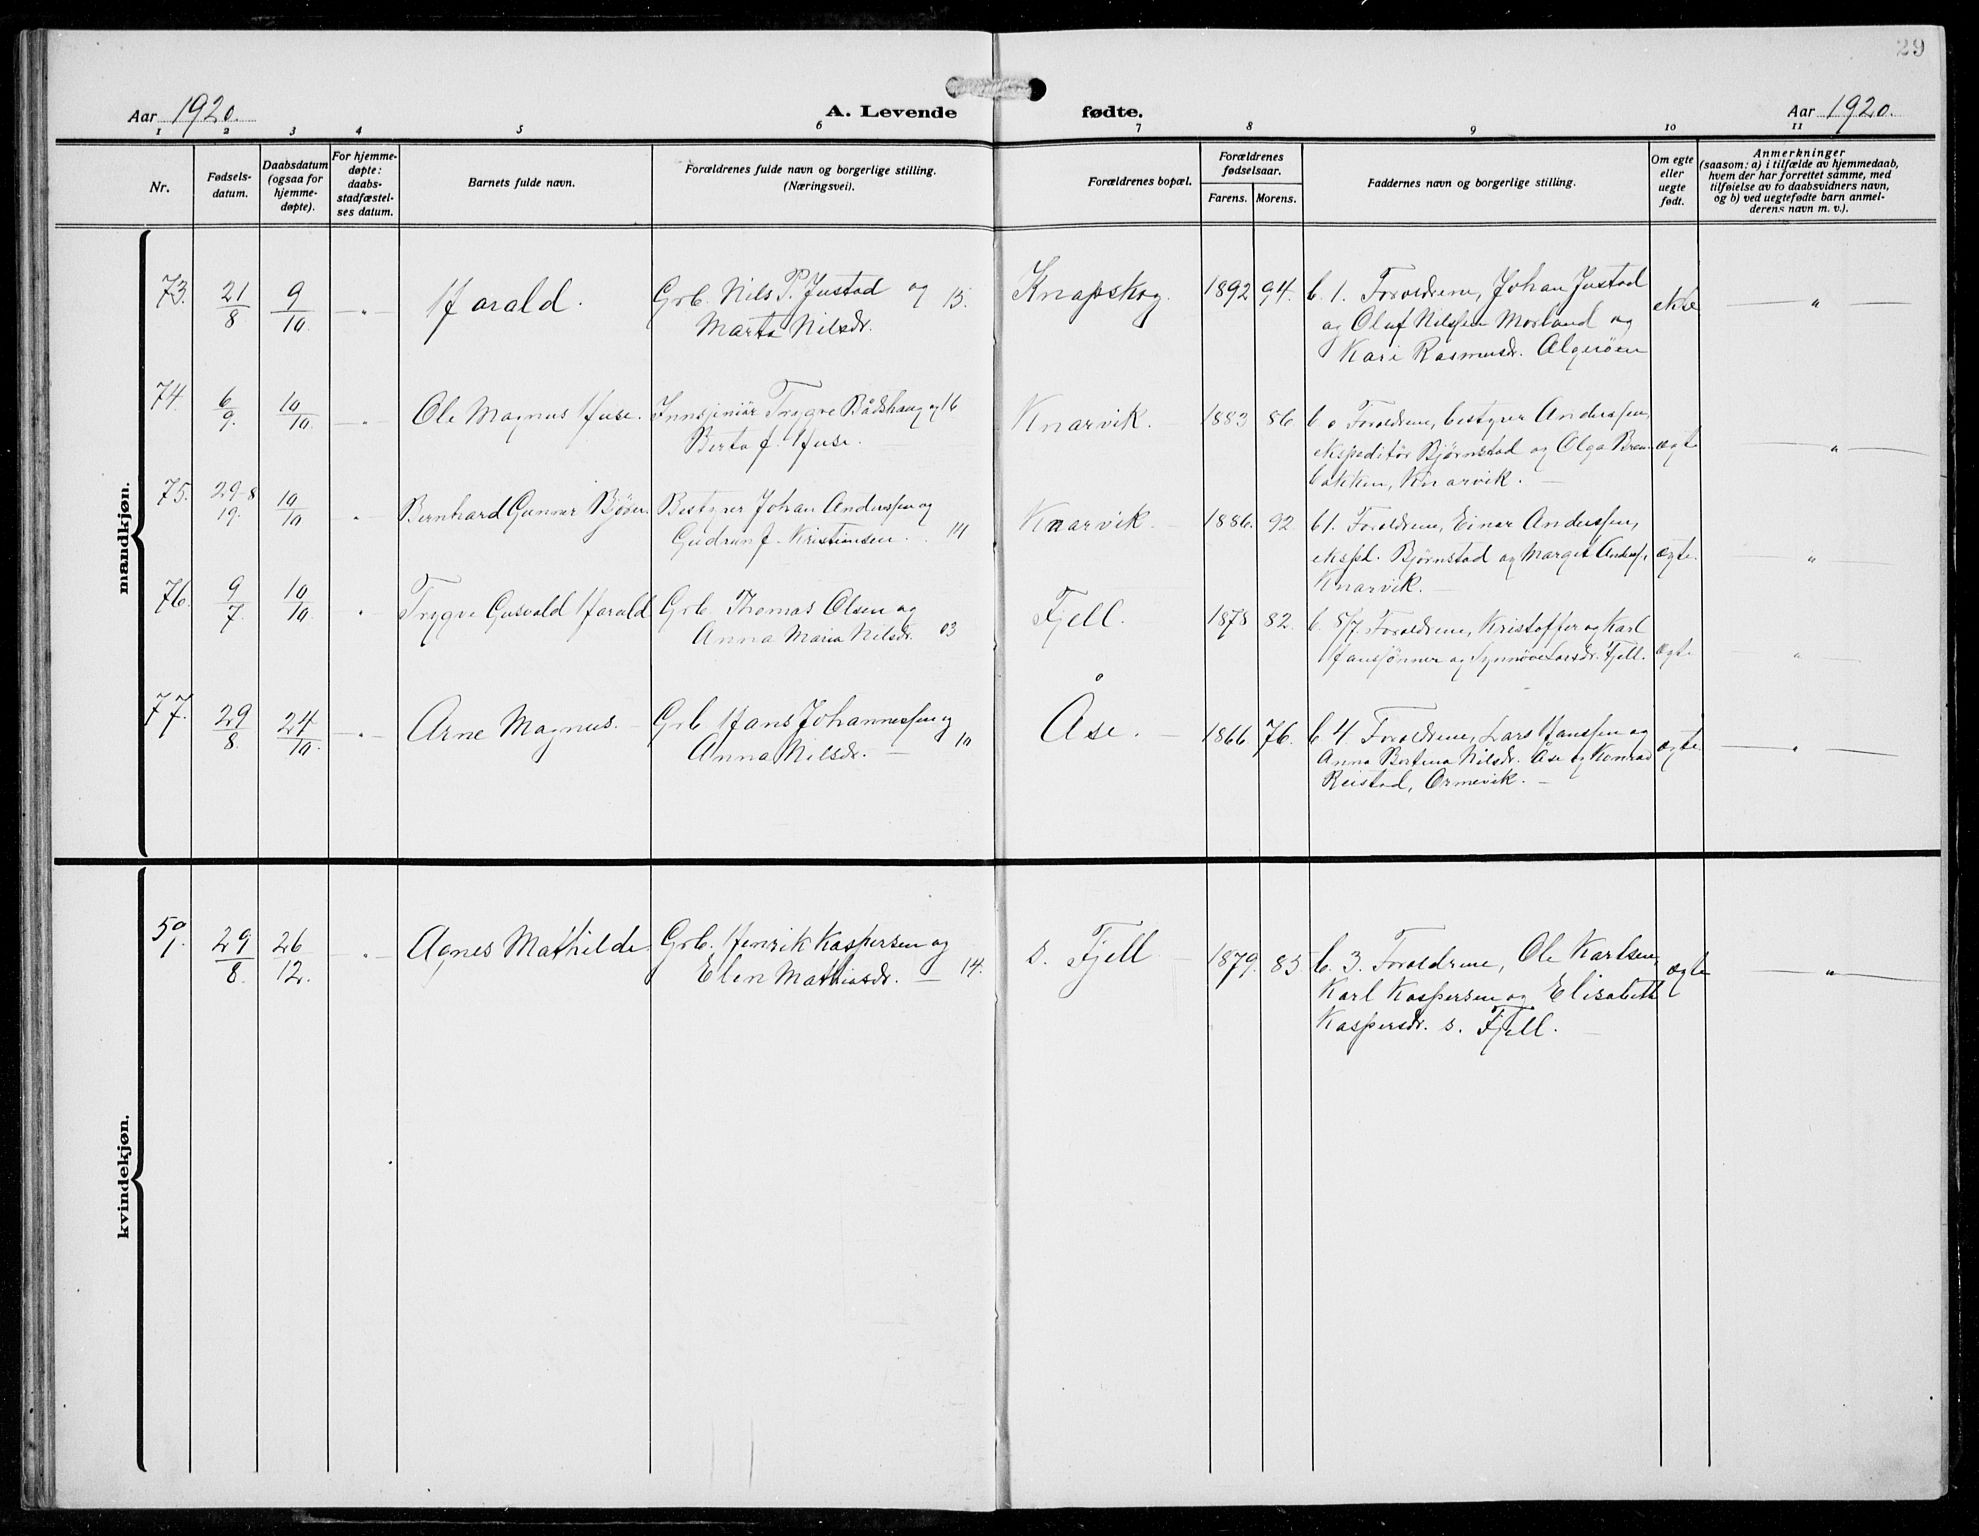 29
Aar 1920.
A. Levende fødte.
Aar 1920.
1 2 3 4 5 6 7 8 9 10 11
Nr.
Fødsels-
datum.
Daabsdatum
(ogsaa for
hjemme-
døpte).
For hjemme-
døpte:
daabs-
stadfæstel-
ses datum.
Barnets fulde navn.
Forældrenes fulde navn og borgerlige stilling.
(Næringsvei).
Forældrenes bopæl.
Forældrenes
fødselsaar.
Farens. Morens.
Faddernes navn og borgerlige stilling.
Om egte
eller
uegte
født.
Anmerkninger
(saasom: a) i tilfælde av hjemmedaab,
hvem der har forrettet samme, med
tilføielse av to daabsvidners navn,
og b) ved uegtefødte barn anmel-
derens navn m. v.).
mandkjøn.
73. 21/8 9/10. — " — Harald. Grb. Nils P. Justad og 15. Knapskog. 1892 94. b. 1. Foreldrene, Johan Justad ekte — " —
Marta Nilsdr. og Oluf Nilssen Morland og
Kari Rasmusdr. Algerøen
74. 6/9. 10/10. — " Ole Magnus Huse. Innsjeniör Trygve Bådshaug og 16 Knarvik. — 1883 86. b. 0 Foreldrene, bestyrer Anderssen, ægte — " —
Berta f. Huse. — ekspeditör Bjørnstad og Olga Bren-
bakken, Knarvik. —
75. 29-8/19. 10/10 " Bernhard Gunnar Bestyrer Johan Anderssen og Knarvik. — 1886. 92 b1. Foreldrene, Einar Anderssen, ægte. " —
Gudrun f. Kristiansen. . 14 ekspd. Bjørnstad og Margit Anderss.
Knarvik. —
76. 9/7. 10/10. " Trygve Gusvald Harald Grb. Thomas Olsen og Fjell. 1878 82. b. 8/7 Foreldrene, Kristoffer og Karl ægte — " —
Anna Maria Nilsdr. 03 Hanssønner og Synnøve Larsdr. Fjell.
77. 29/8. 24/10. — " — Arne Magnus. — Grb Hans Johannessen og Åse. — 1866. 76. b 4. Foreldrene, Lars Hanssen og ægte — " —
Anna Nilsdr. — 10 Anna Bertina Nilsdr. Åse og Konrad
Reistad, Ormevik. —
kvindekjøn.
50/1. 29/8. 26/12. — " — Agnes Mathilde Grb. Henrik Kaspersen og s. Fjell — 1879. 85 b. 3. Foreldrene, Ole Karlsen, ægte — " —
Elen Mathiasdr. — 14. Karl Kaspersen og Elisabeth
Kaspersdr. s. Fjell. —